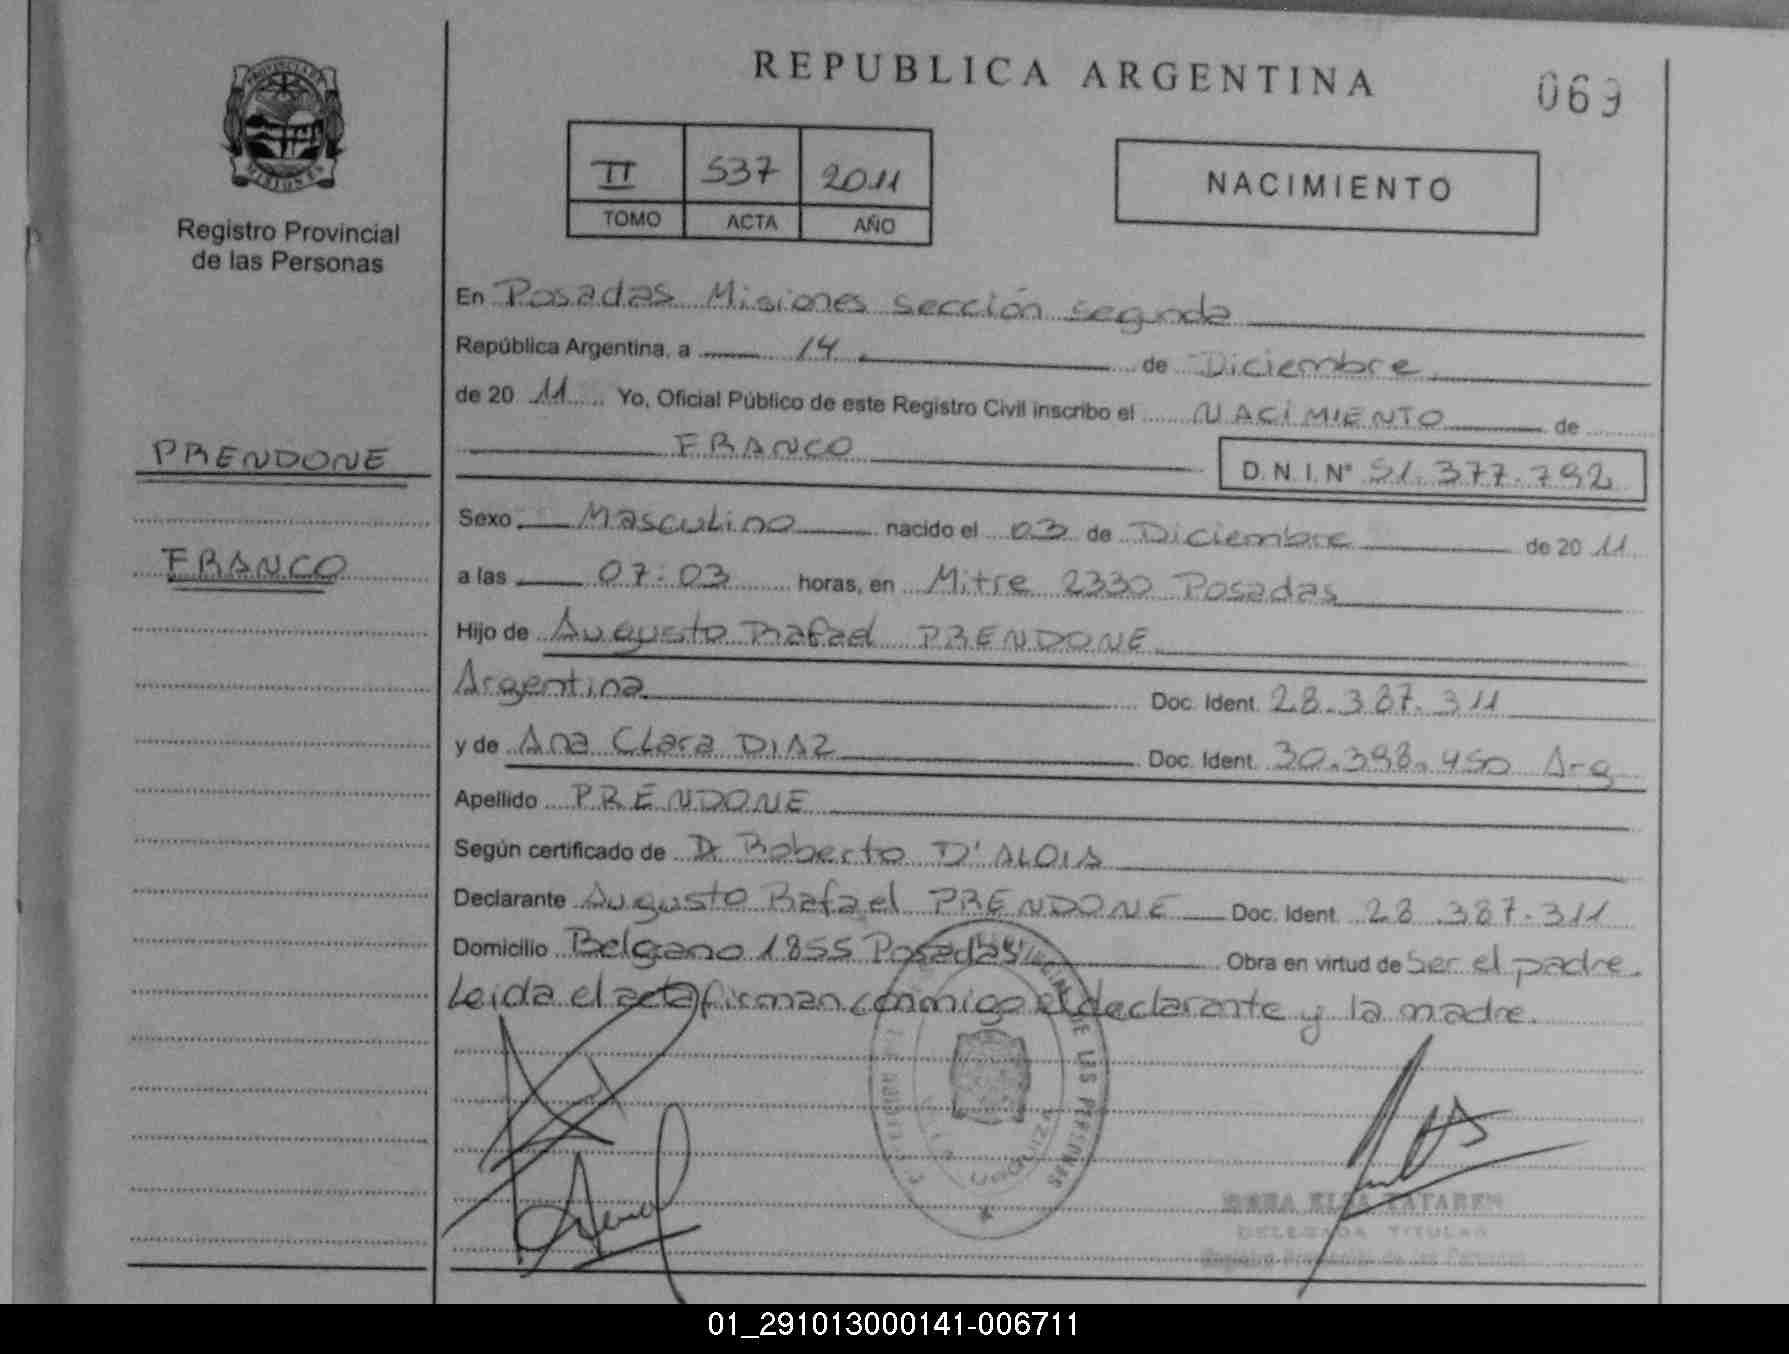 REPUBLICA ARGENTINA
069
PROVINCIA DE
MISIONES
Registro Provincial
de las Personas
II 537 2011
TOMO ACTA AÑO
NACIMIENTO
En Posadas Misiones sección segunda
República Argentina, a 14 de Diciembre
de 20 11 Yo, Oficial Público de este Registro Civil inscribo el NACIMIENTO de
PRENDONE
FRANCO
D.N.I.Nº 51.377.792
Sexo Masculino nacido el 03 de Diciembre de 20 11
FRANCO
a las 07:03 horas, en Mitre 2330 Posadas
Hijo de Augusto Rafael PRENDONE
Argentina Doc. Ident. 28.387.311
y de Ana Clara DIAZ Doc. Ident. 30.398.450 Arg
Apellido PRENDONE
Según certificado de Dr Roberto D'ALOIA
Declarante Augusto Rafael PRENDONE Doc. Ident. 28.387.311
Domicilio Belgano 1855 Posadas Obra en virtud de Ser el padre.
Leida el acta firman conmigo el declarante y la madre.
DE LAS PERSONAS
DELEGADA TITULAR
Registro Provincial de las Personas
01_291013000141-006711